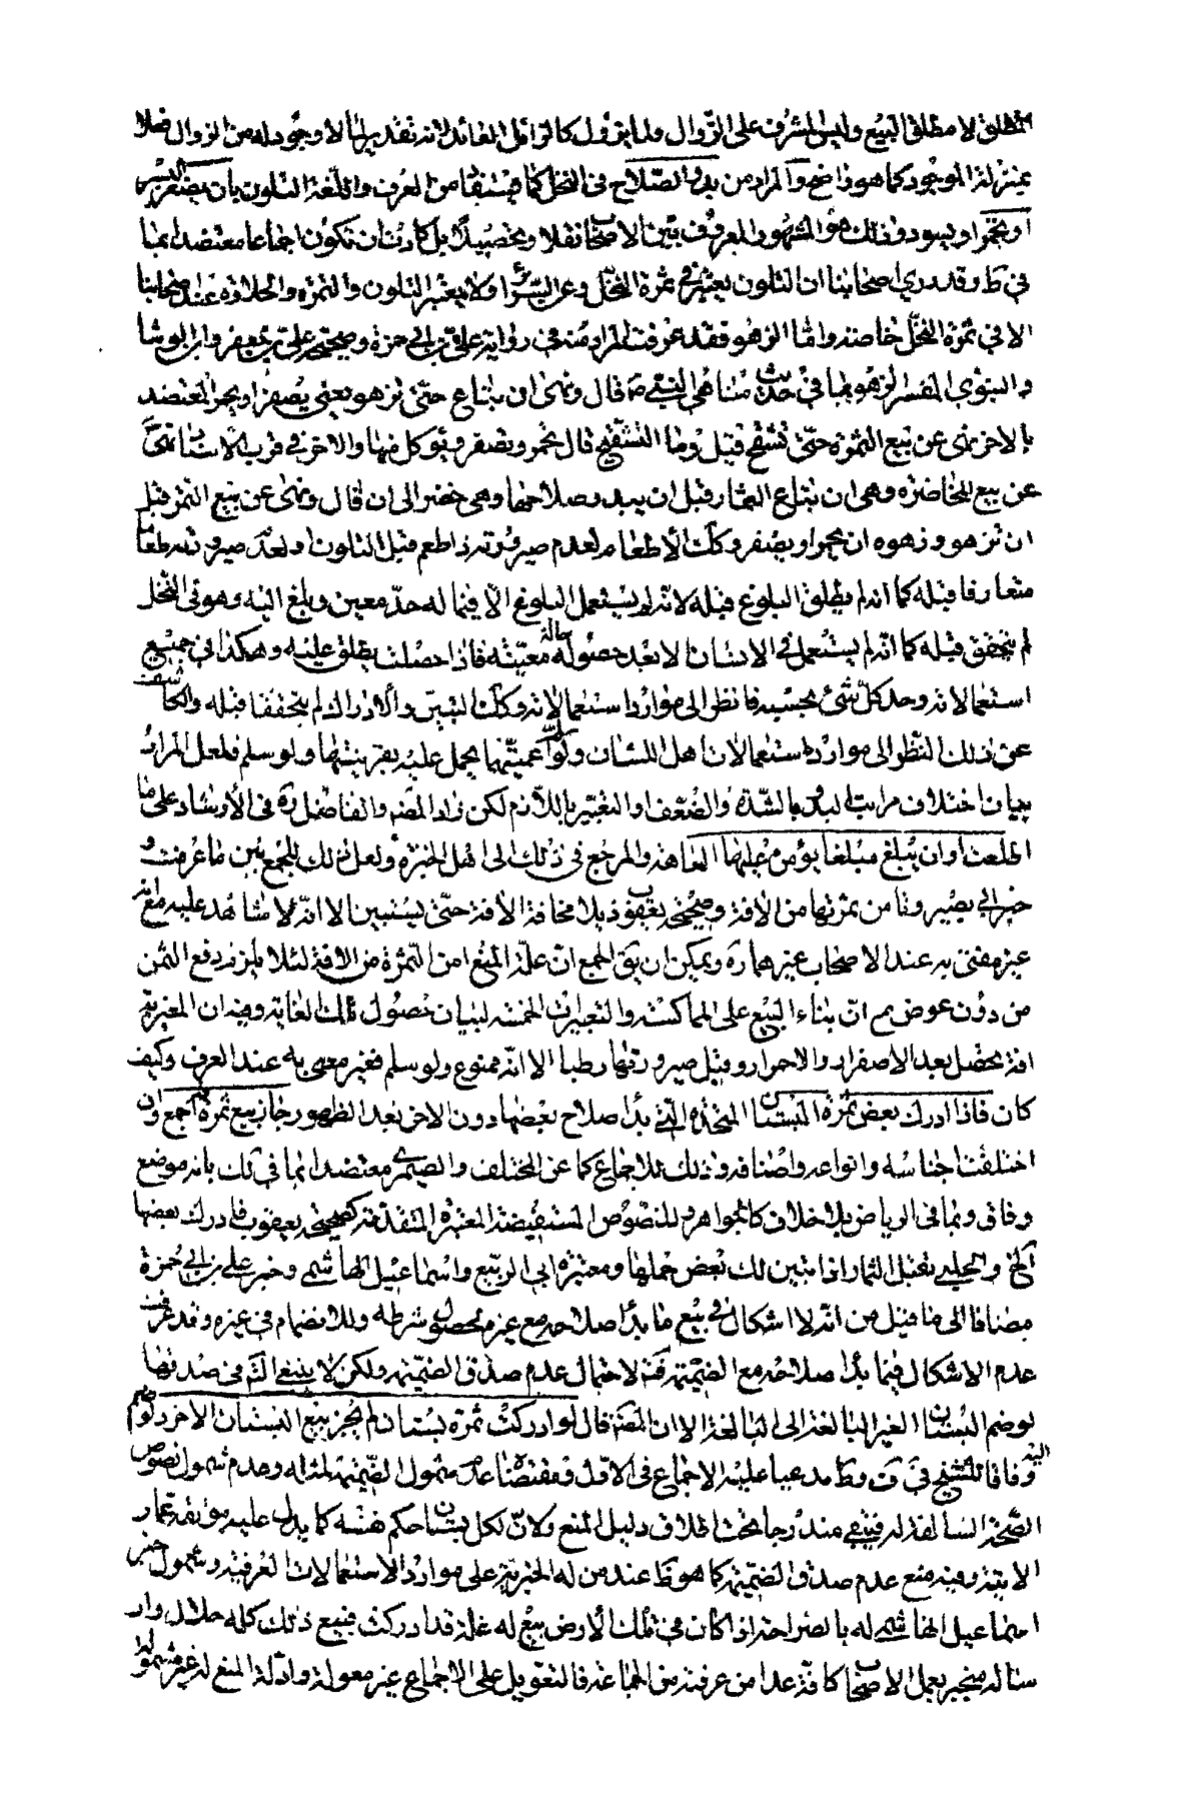 المطلق لا مطلق البيع وليس المشرف على الزوال ولما يؤول كالزائل العائد لانه تقديرها لا وجود له من الزوال فضلا
بمنزلة الموجود كما هو واضح والمراد من بدو الصلاح فى النخل كما هو من العرف واللغة التلون بأن يصفر البسر
او يحمر او يسود وذلك هو المشهور المعروف بين الاصحاب نقلا وتحصيلا بل كادت ان تكون اجماعا معتضدا بما
فى ط وقد روى اصحابنا ان التلون يعتبر فى ثمرة النخل وعن السرائر ولا يعتبر التلون والتموه والحلاوة عند اصحابنا
الا فى ثمرة النخل خاصة واما الزهو فقد عرفت المراد منه فى رواية على بن ابى حمزة وصحيحة على بن جعفر وابن الوشا
والنبوى المفسر لزهوها بما فى حديث مناهى النبى ص قال ونهى ان تبتاع حتى تزهو يعنى يصفر او يحمر المعتضد
بالاخر نهى عن بيع الثمرة حتى تشقح قيل وما التشقيح قال تحمر وتصفر ويؤكل منها والاخر فى قرب الاسناد نهى
عن بيع المخاضرة وهى ان تبتاع الثمار قبل ان يبدو صلاحها وهى خضر الى ان قال ونهى عن بيع التمر قبل
ان تزهو وزهوه ان يحمر او يصفر وكك الاطعام لعدم صيرورته ذا طعم قبل التلون او لعدم صيرورته طعاما
متعارفا قبله كما انه لم يطلق البلوغ قبله لانه لم يستعمل البلوغ الا فيما له حد معين وبلغ اليه وهو فى النخل
لم يتحقق قبله كما انه لم يستعمل فى الانسان الا بعد حصوله حالة معينة فاذا حصلت يطلق عليه وهكذا فى جميع
استعمالاته وحد كل شئ بحسبه فانظر الى موارد استعمالاته وكك التبين والادراك لم يتحققا قبله والكاشف
عن ذلك النظر الى موارد استعمالات اهل اللسان ولو عميتها يحمل عليه بقرينتها ولو سلم فلعل المراد
بيان اختلاف مراتب البدو بالشدة والضعف او التغيير باللازم لكن زاد المصنف والفاضل ره فى الارشاد على ما
اطلعت او ان يبلغ مبلغا يؤمن عليها العاهة والمرجع فى ذلك الى اهل الخبرة ولعل ذلك للجمع بين ما عرفت و
خبر ابى بصير وتأمن ثمرتها من الافة وصحيحة يعقوب بلا مخافة الافة حتى يستبين الا انه لا شاهد عليه مع انه
غير مفتى به عند الاصحاب غيرهما ره ويمكن ان يق الجمع ان علة المنع امن الثمرة من الافة لئلا يلزمه دفع الثمن
من دون عوض مع ان بناء البيع على المماكسة والتعبيرات الخمسة لبيان حصول تلك الغاية ومنه ان الغير
افة يحصل بعد الاصفرار والاحمرار وقبل صيرورتها رطبا الا انه ممنوع ولو سلم فغير معنى به عند العرف وكيف
كان فاذا ادرك بعض ثمرة البستان المتحدة التى بدا صلاح بعضها دون الاخر بعد الظهور جاز بيع ثمرته اجمع وان
اختلفت اجناسه وانواعه واصنافه وذلك للاجماع كما عن المختلف والصيمرى معتضدا بما فى لك بانه موضع
وفاق وبما فى الرياض بلا خلاف كالجواهر للنصوص المستفيضة المعتبرة المتقدمة كصحيحة يعقوب فادرك بعضها
الخ والحلبى تقبل الثمار اذا تبين لك بعض حملها ومعتبرة ابى الربيع واسماعيل الهاشمى وخبر على بن ابى حمزة
مضافا الى ما قيل من انه لا اشكال فى بيع ما بدا صلاحه مع غيره لحصول شرطه وللانضمام فى غيره وقد عرفت
عدم الاشكال فيما بدا صلاحه مع الضميمة لاحتمال عدم صدق الضميمة ولكن لا ينبغى الشك فى صدقها
لو ضم البستان الغير البالغة الى البالغة الا ان المصنف قال لو ادركت ثمرة بستان لم يجز بيع البستان الاخر ولو ضم
اليه وفاقا للشيخ فى ف وط مدعيا عليه الاجماع فى الاول ومقتضاه عدم شمول الضميمة لمثله وعدم شمول نصوص
الصحة السالفة له فيبقى مندرجا تحت اطلاق دليل المنع ولان لكل بستان حكم نفسه كما يدل عليه موثقة عمار
الاتية ومنه منع عدم صدق الضميمة كما هو ظ عند من له الخبرة على موارد الاستعمالات العرفية وشمول خبر
اسماعيل الهاشمى له بالصراحة اذا كان فى تلك الارض بيع له غلة قد ادركت فبيع ذلك كله حلال وار
ساله منجبر بعمل الاصحاب كافة عدا من عرفته من الجماعة فالتعويل على الاجماع غير معولة وادلة المنع له غير مشمولة